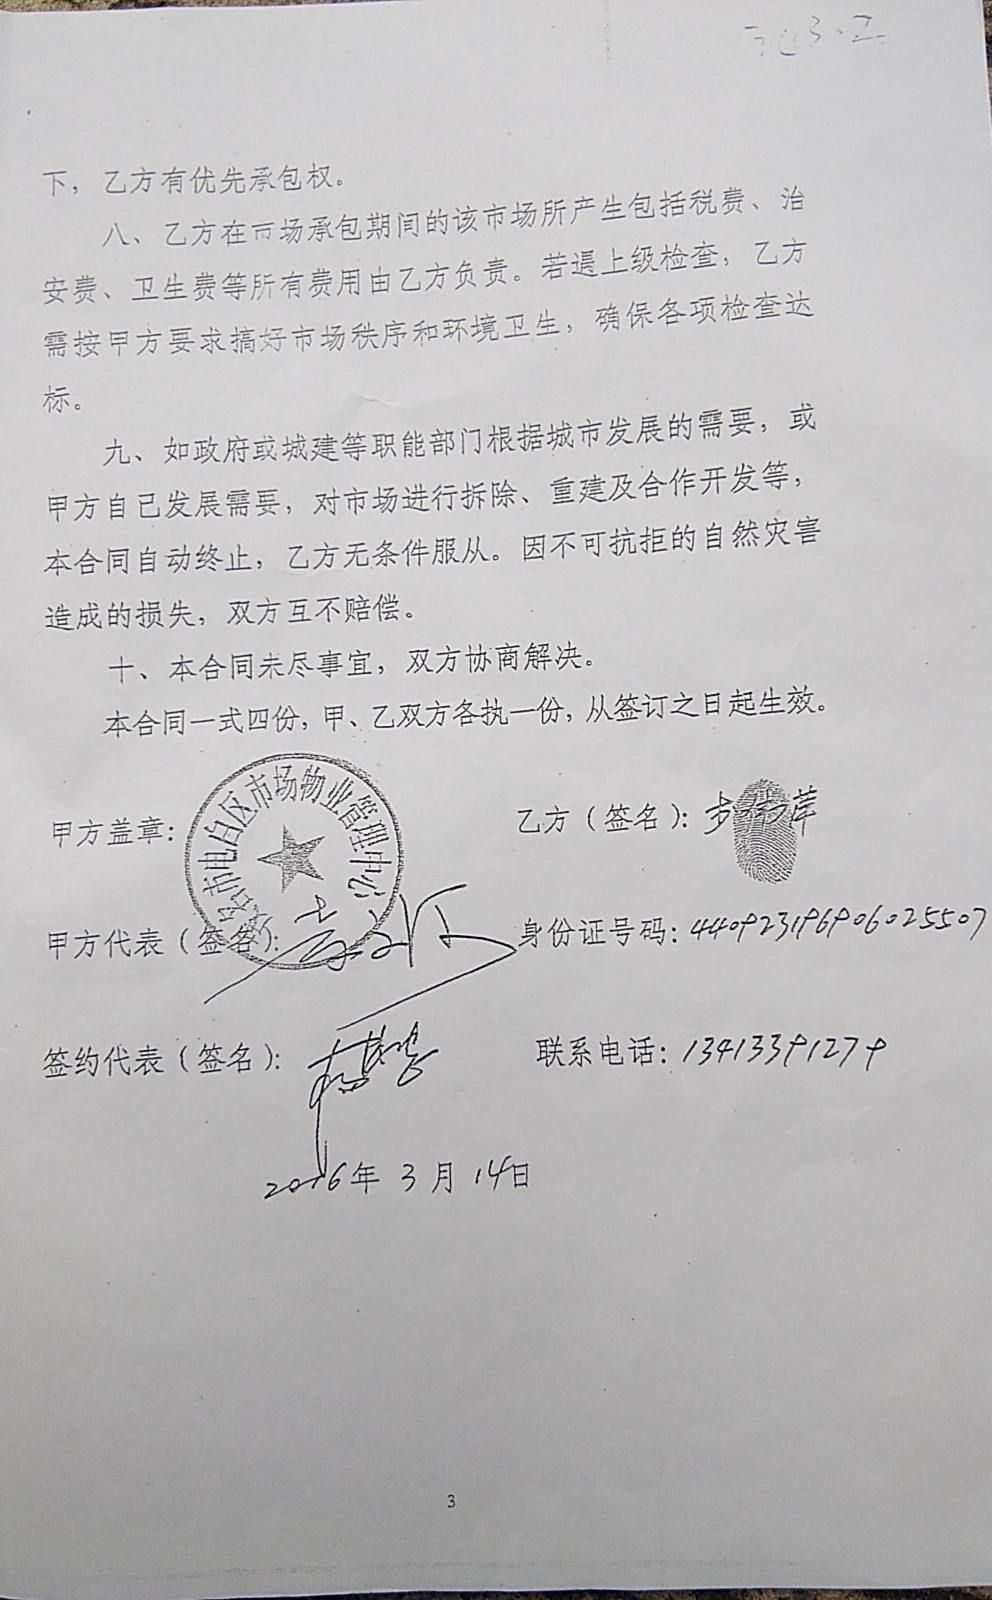 下，乙方有优先承包权。
八、乙方在市场承包期间的该市场所产生包括税费、治
安费、卫生费等所有费用由乙方负责。若遇上级检查，乙方
需按甲方要求搞好市场秩序和环境卫生，确保各项检查达
标。
九、如政府或城建等职能部门根据城市发展的需要，或
甲方自己发展需要，对市场进行拆除、重建及合作开发等，
本合同自动终止，乙方无条件服从。因不可抗拒的自然灾害
造成的损失，双方互不赔偿。
十、本合同未尽事宜，双方协商解决。
本合同一式四份，甲、乙双方各执一份，从签订之日起生效。
名市电白区市场物业管理中心
甲方盖章：
乙方（签名）：
甲方代表（签名）：
身份证号码：440923196906025507
签约代表（签名）：
联系电话：13413391279
2016年3月14日
3